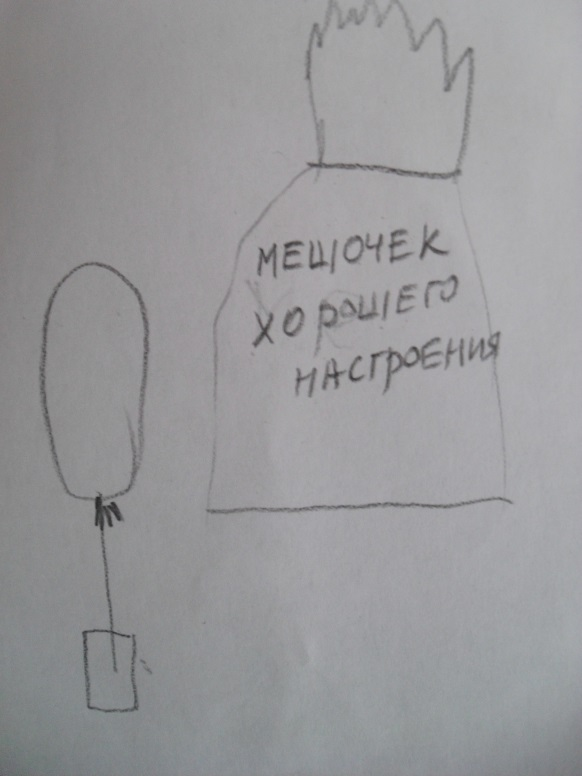 МЕШОЧЕК
ХОРОШЕГО
НАСТРОЕНИЯ